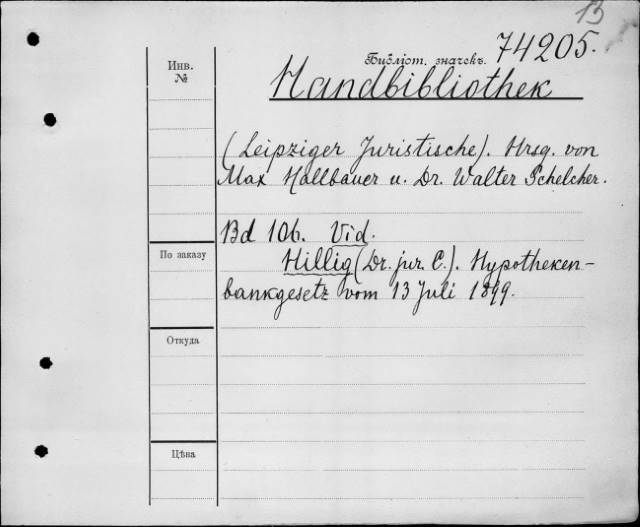 13
Библіот. значекъ. 74205.
Инв.
№
Handbibliothek
(Leipziger Juristische). Hrsg. von
Max Hallbauer u. Dr. Walter Schelcher.
Bd 106. Vid.
По заказу
Hillig (Dr. jur. C.). Hypotheken-
bankgesetz vom 13 Juli 1899.
Откуда
Цѣна